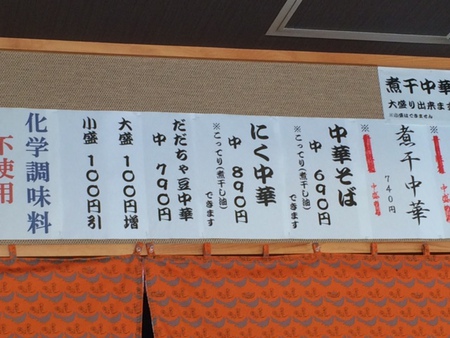 煮干中華
大盛り出来ます
煮干中華
740円
※
中華そば
中 690円
※こってり(煮干し油)
できます
にく中華
中 890円
※こってり(煮干し油)
できます
だだちゃ豆中華
中 790円
大盛 100円増
小盛 100円引
化学調味料
不使用